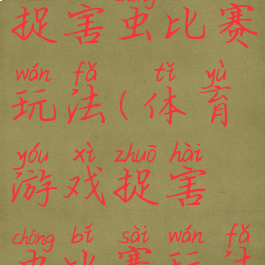 捉害虫比赛
wán fǎ tǐ yù
玩法(体育
yóu xì zhuō hài
游戏捉害
chóng bǐ sài wán fǎ
虫比赛玩法